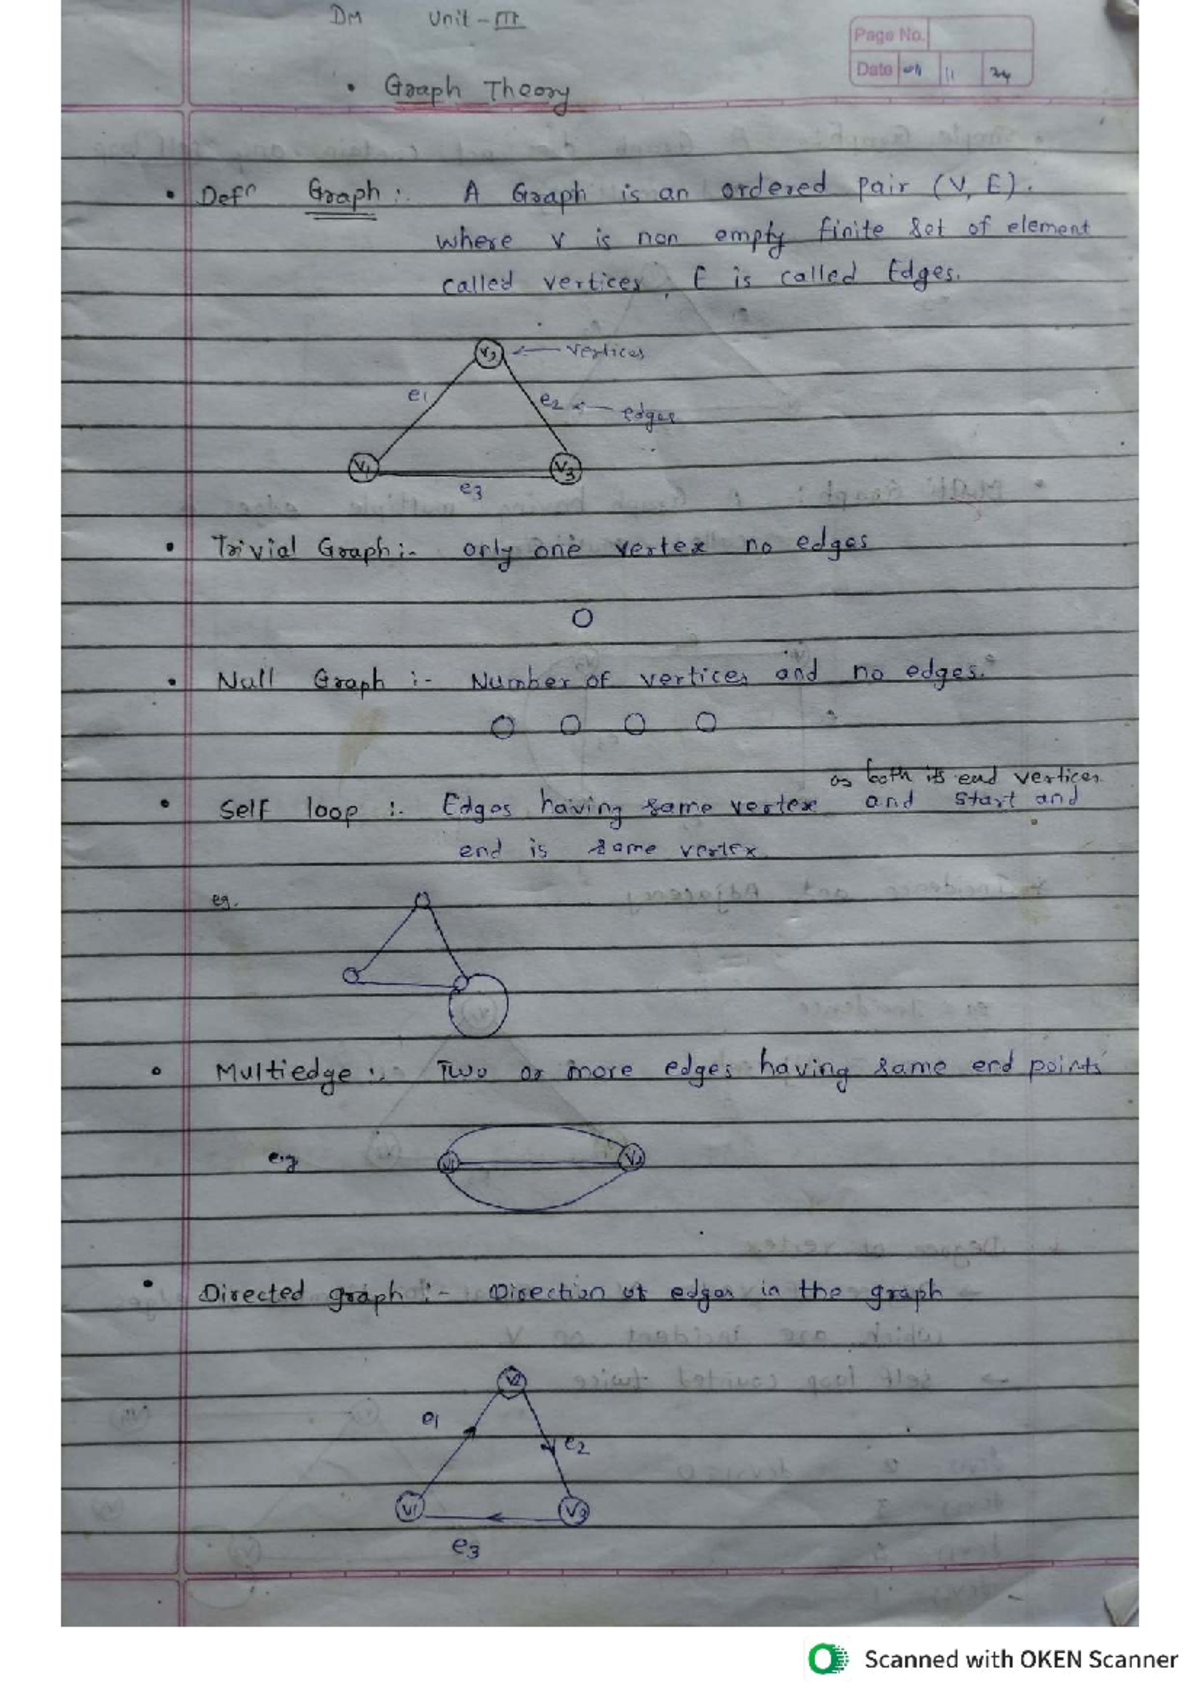 DM Unit - III
Page No.
Date 11 24
• Graph Theory
• Defn Graph :- A Graph is an ordered pair (V, E).
where V is non empty finite set of element
called vertices, E is called Edges.
V2 ← vertices
e1 e2 ← edges
V1 V3
e3
• Trivial Graph :- only one vertex no edges
• Null Graph :- Number of vertices and no edges.
as both its end vertices
• Self loop :- Edges having same vertex and start and
end is same vertex
eg.
• Multiedge :- Two or more edges having same end points
e.g
V1 V2
• Directed graph :- Direction of edges in the graph
V2
e1 e2
V1 V3
e3
Scanned with OKEN Scanner